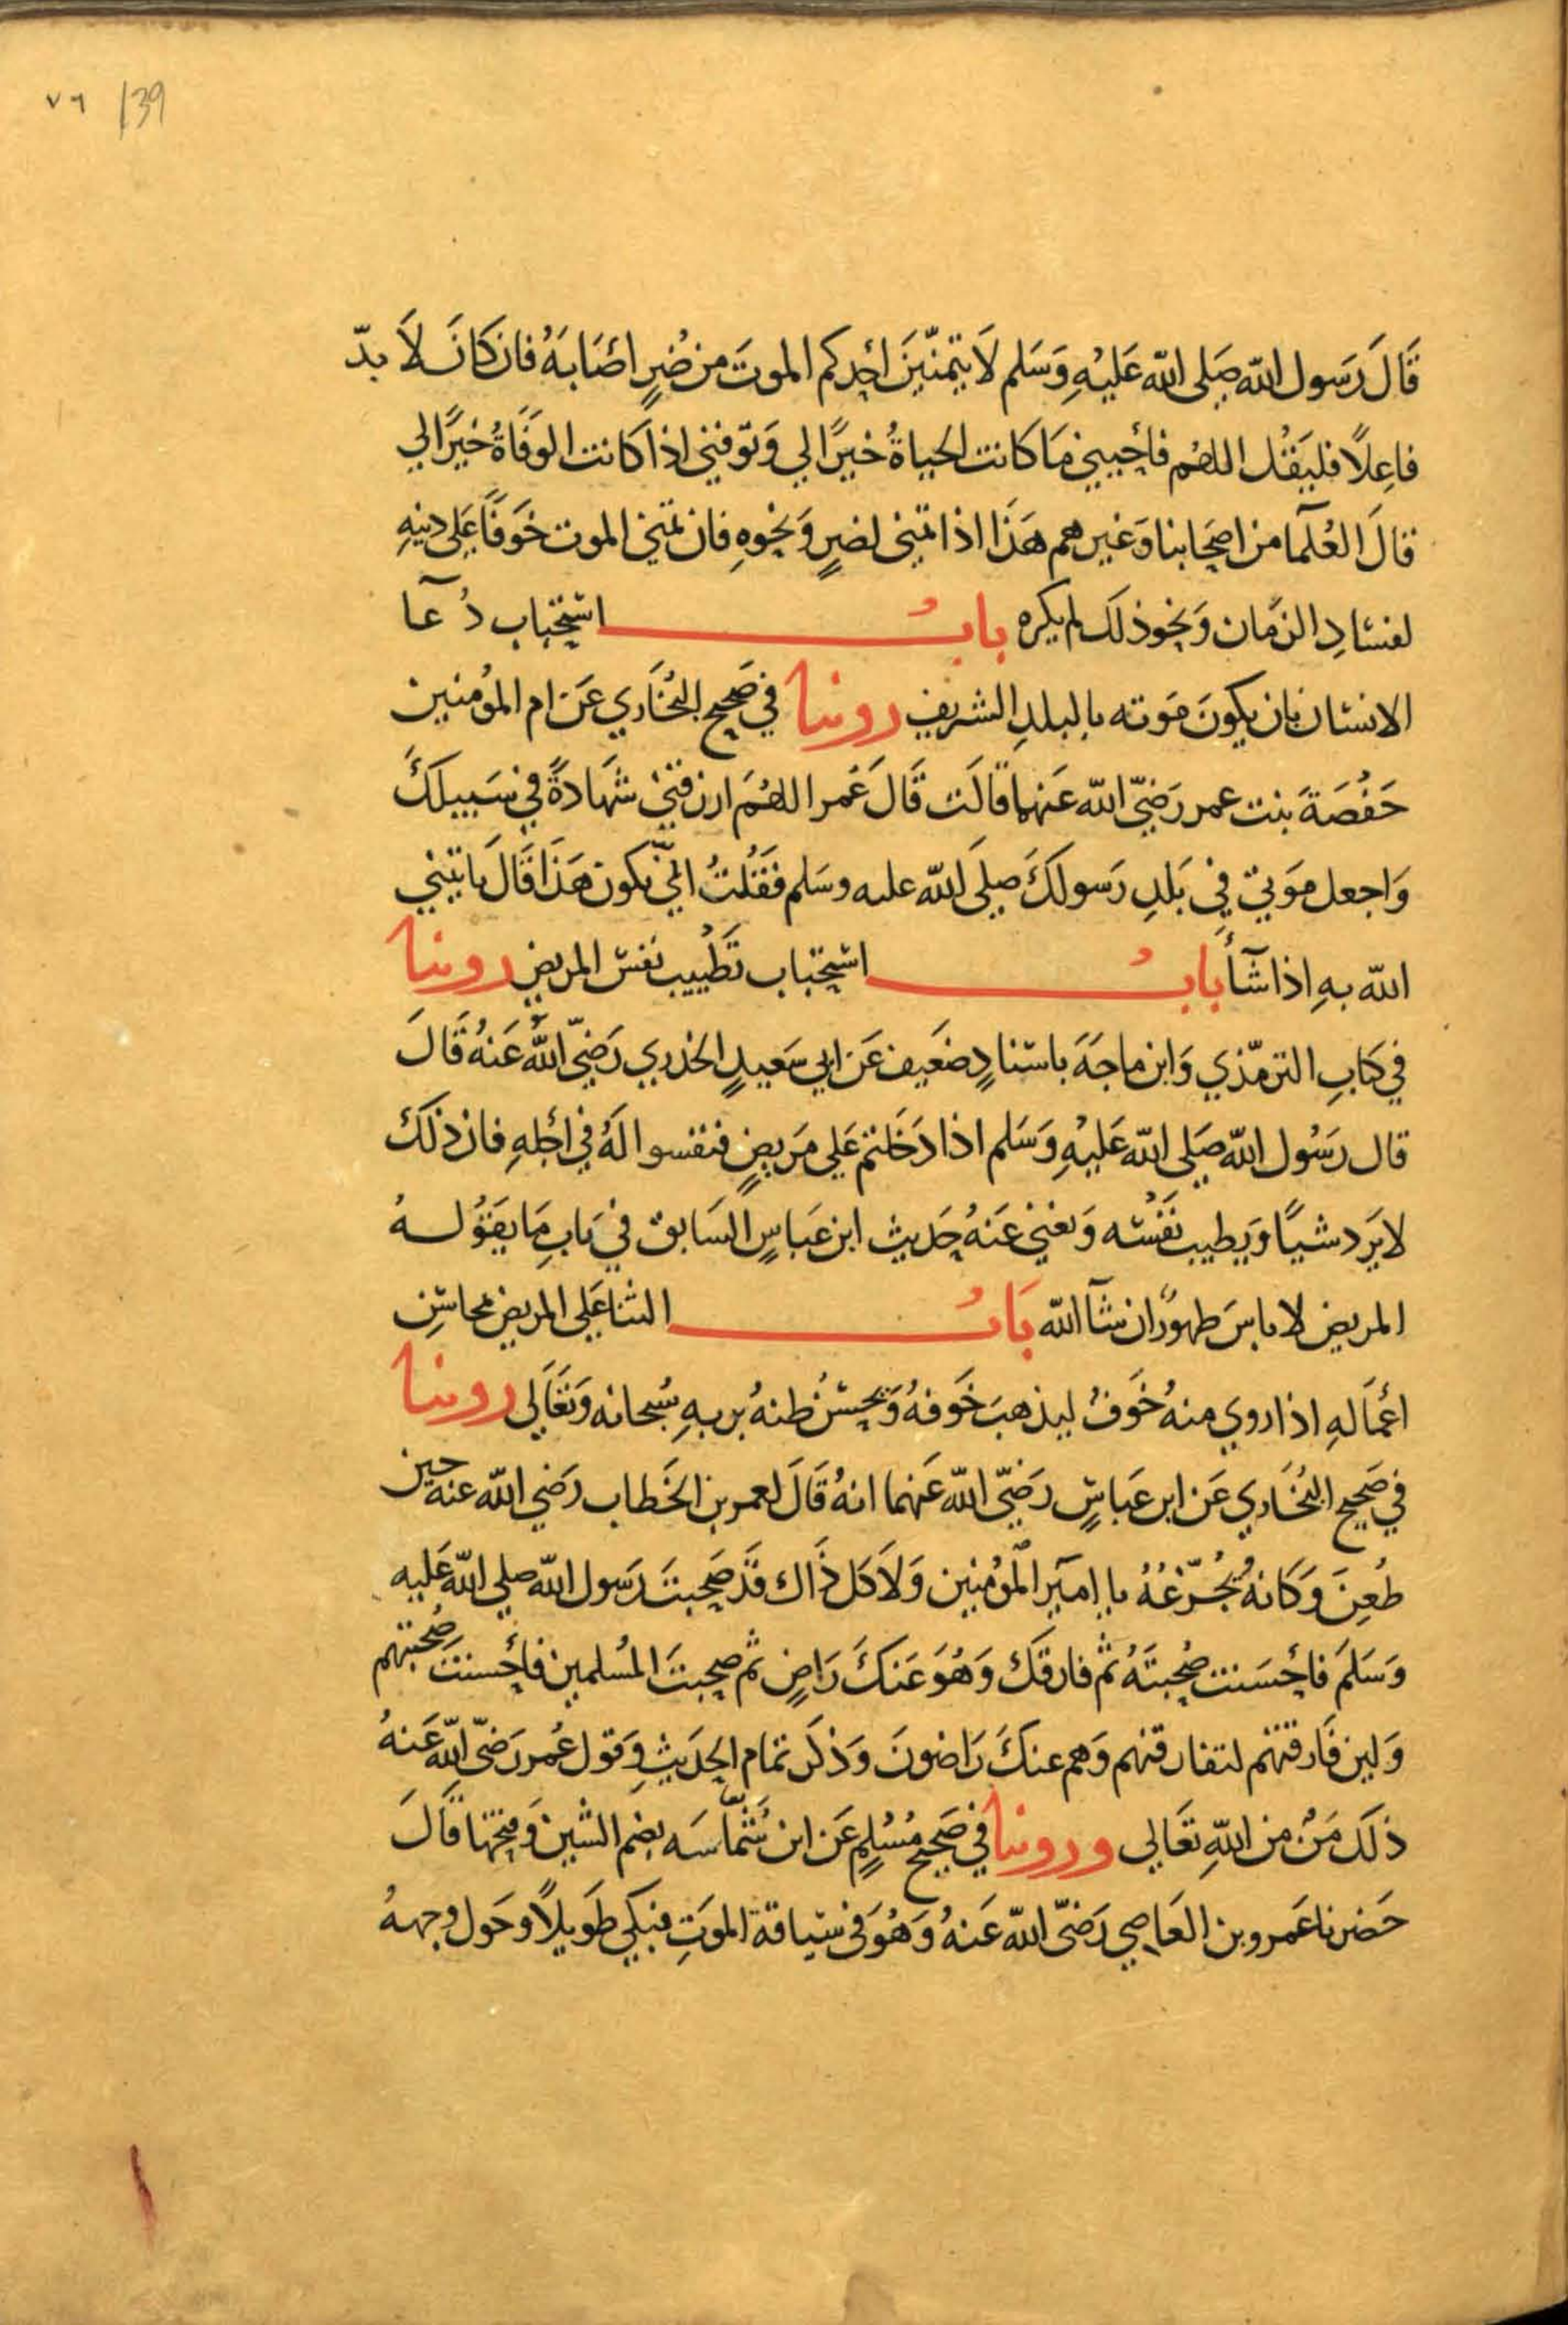 ٧٦ 139
قَالَ رَسَول الله صَلى الله عَليْهِ وَسَلم لَا يتمنّينَ احَدكم الموتَ من ضُرٍ اصَابَهُ فان كَانَ لاَ بدّ
فاعِلاً فليَقُل اللهُم فأحييني مَا كانت الحياةُ خيرًا لي وَتوفني اذا كانت الوَفَاةُ خيرًا لي
قالَ العُلمآ من اصحَابنا وَغيرهم هَذَا اذا تمنى لضرٍ وَنحوهِ فان تمنى الموت خوَفًا عَلى دينهِ
لفسَادِ الزمَان وَنحوذلكَ لم يكره بابُ استحباب دُعآ
الانسَان بان يكونَ مَوته بالبلدِ الشريف روينا في صَحيح البُخَاري عَن ام المؤمنين
حَفْصَةَ بنت عمر رَضيّ الله عَنهما قالَت قَالَ عُمر اللهُمَ ارزقني شهَادةً في سَبيلكَ
وَاجعل موَتي في بَلدِ رَسولكَ صلى الله عليه وسَلم فقُلتُ انيّ يكون هَذَا قالَ يَاتيني
الله بهِ اذا شآأ بابُ استحباب تَطييب نفس المريض روينا
في كتابِ الترمّذي وَابن ماجَهَ باسنادٍ ضعَيف عَن ابي سَعيدٍ الخدري رَضيّ الله عَنهُ قالَ
قال رسُول الله صَلى الله عَليْهِ وَسَلم اذا دَخَلتم عَلى مَريضٍ فنفسوا لهُ في اجَلهِ فان ذلكَ
لا يَرد شيًا وَيطيب نفْسَه وَيغني عَنهُ حَديث ابن عَباسٍ السَابق في بَابِ مَا يقوُلهُ
المريض لا باسَ طهورٌ ان شآ الله بَابُ الثنا عَلى المريض بمحاسن
اعماَلهِ اذا روي منهُ خوَفٌ ليذهبَ خَوفهُ وَيحسُن ظنهُ بربهِ سُبحانه وَتعَالى روينا
في صَحيح البُخَاري عَن ابن عَباسٍ رَضيّ الله عَنهما انهُ قَالَ لعمر بن الخَطاب رَضي الله عنه حين
طُعِنَ وَكانهُ يُجزّعُهُ يا اميَر المؤمنين وَلا كل ذَاك قدَ صَحِبتَ رَسول الله صلى الله عَليه
وَسَلمَ فاحسَنت صُحبتَهُ ثم فارقكَ وَهُوَ عَنكَ رَاضٍ ثم صحِبتَ المُسلمين فأحسنتَ صُحبَتهم
وَلين فَارقتهم لتفارقنهم وَهم عنكَ رَاضونَ وَذكَر تمام الحَديثِ وَقول عُمر رَضيّ الله عَنهُ
ذلكَ مَنٌ من اللهِ تعَالى وروينا في صَحيح مُسْلمٍ عَن ابن شُمَّاسَه بضم الشين وَفتحها قالَ
حَضرنا عَمرو بن العَاصي رَضيّ الله عَنهُ وَهُوَ في سياقة الموَتِ فبَكي طوَيلاً وحَول وجههُ